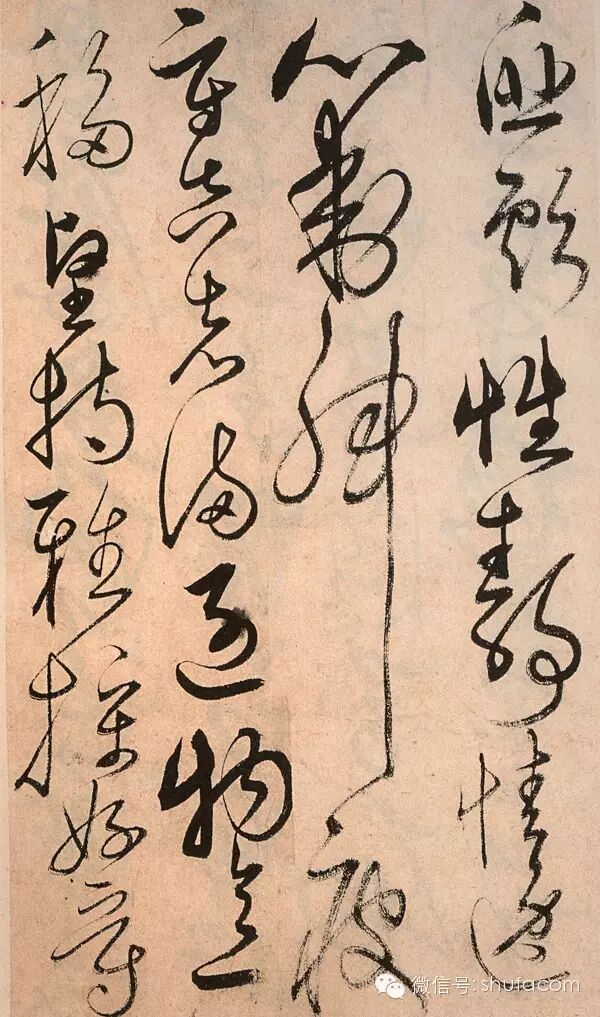 匪虧性靜情逸
心動神疲
守真志滿逐物意
移堅持雅操好爵
微信号: shufacom